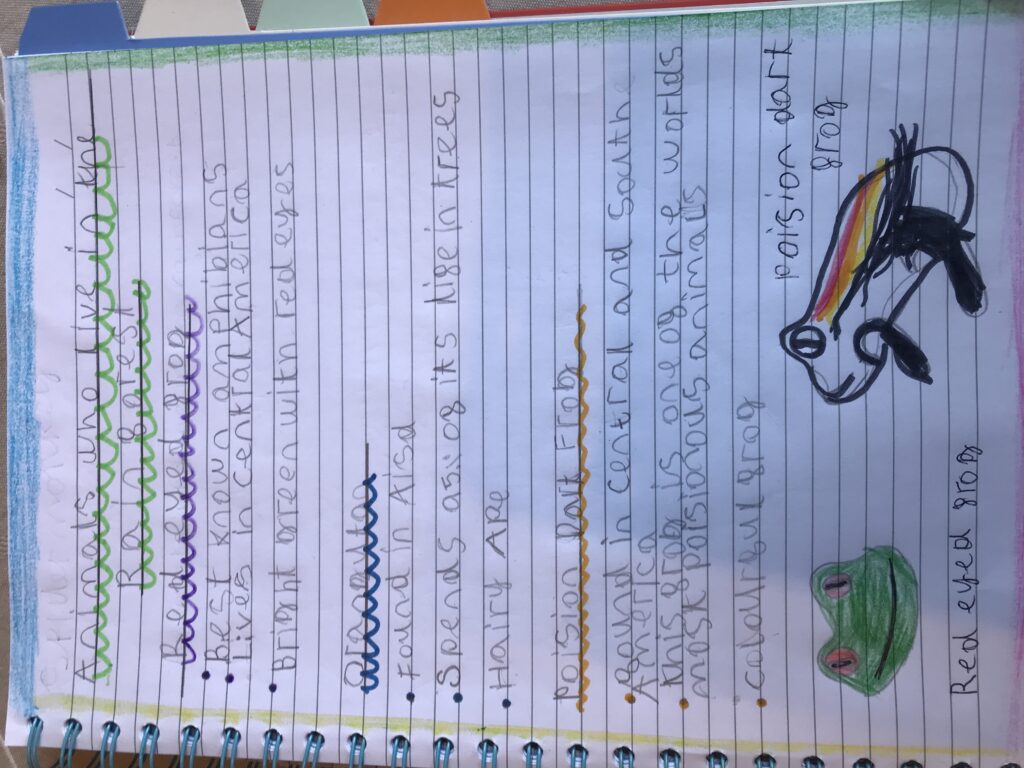 Animals who live in the
Rainforest
Red eyed frog
• Best known amphibians
• Lives in central America
• Bright green with red eyes
Orangutan
• Found in Aisa
• Spends a lot of its life in trees
• Hairy Ape
Poision Dart Frog
• found in central and South
America
• this frog is one of the worlds
most poisionous animals
• colourful frog
poision dart
frog
Red eyed frog